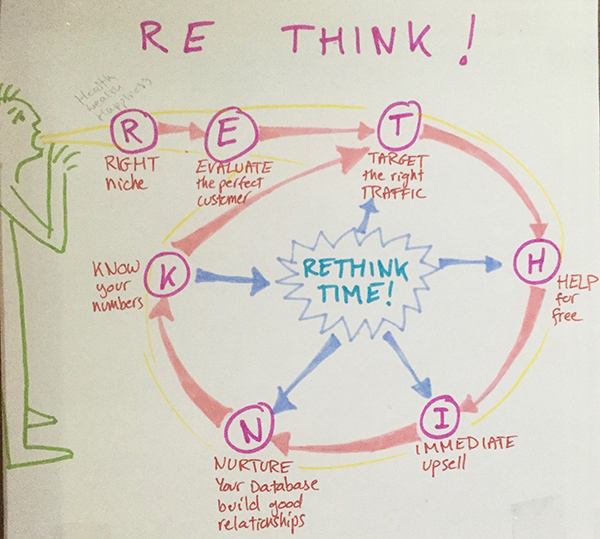 RE THINK!
Health
wealth
Happiness
R
RIGHT
niche
E
EVALUATE
the perfect
customer
T
TARGET
the right
TRAFFIC
H
HELP
for
free
I
IMMEDIATE
upsell
N
NURTURE
Your DataBase
build good
relationships
K
KNOW
your
numbers
RETHINK
TIME!